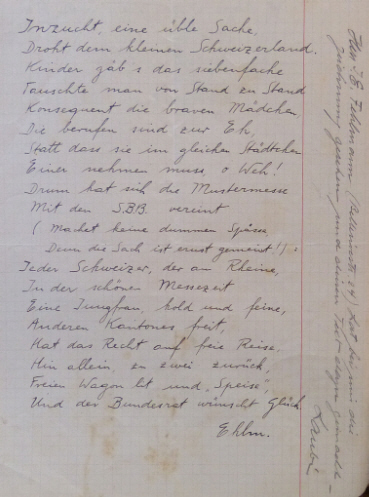 Inzucht, eine üble Sache,
Droht dem kleinen Schweizerland.
Kinder gäb's das siebenfache
Tauschte man von Stand zu Stand
Konsequent die braven Mädchen,
Die berufen sind zur Eh,
Statt dass sie im gleichen Städtchen
Einer nehmen muss, o Weh!
Drum hat sich die Mustermesse
Mit den S.B.B. vereint
(Machet keine dummen Spässe,
Denn die Sach ist ernst gemeint!).
Jeder Schweizer, der am Rheine,
In der schönen Messezeit
Eine Jungfrau, hold und feine,
Anderen Kantones freit,
Hat das Recht auf freie Reise,
Hin allein, zu zwei zurück,
Freien Wagon lit und "Speise",
Und der Bundesrat wünscht Glück
Ehlm.
hat bei mir die
Zeichnung gesehen und diesen Text dazu gemacht -